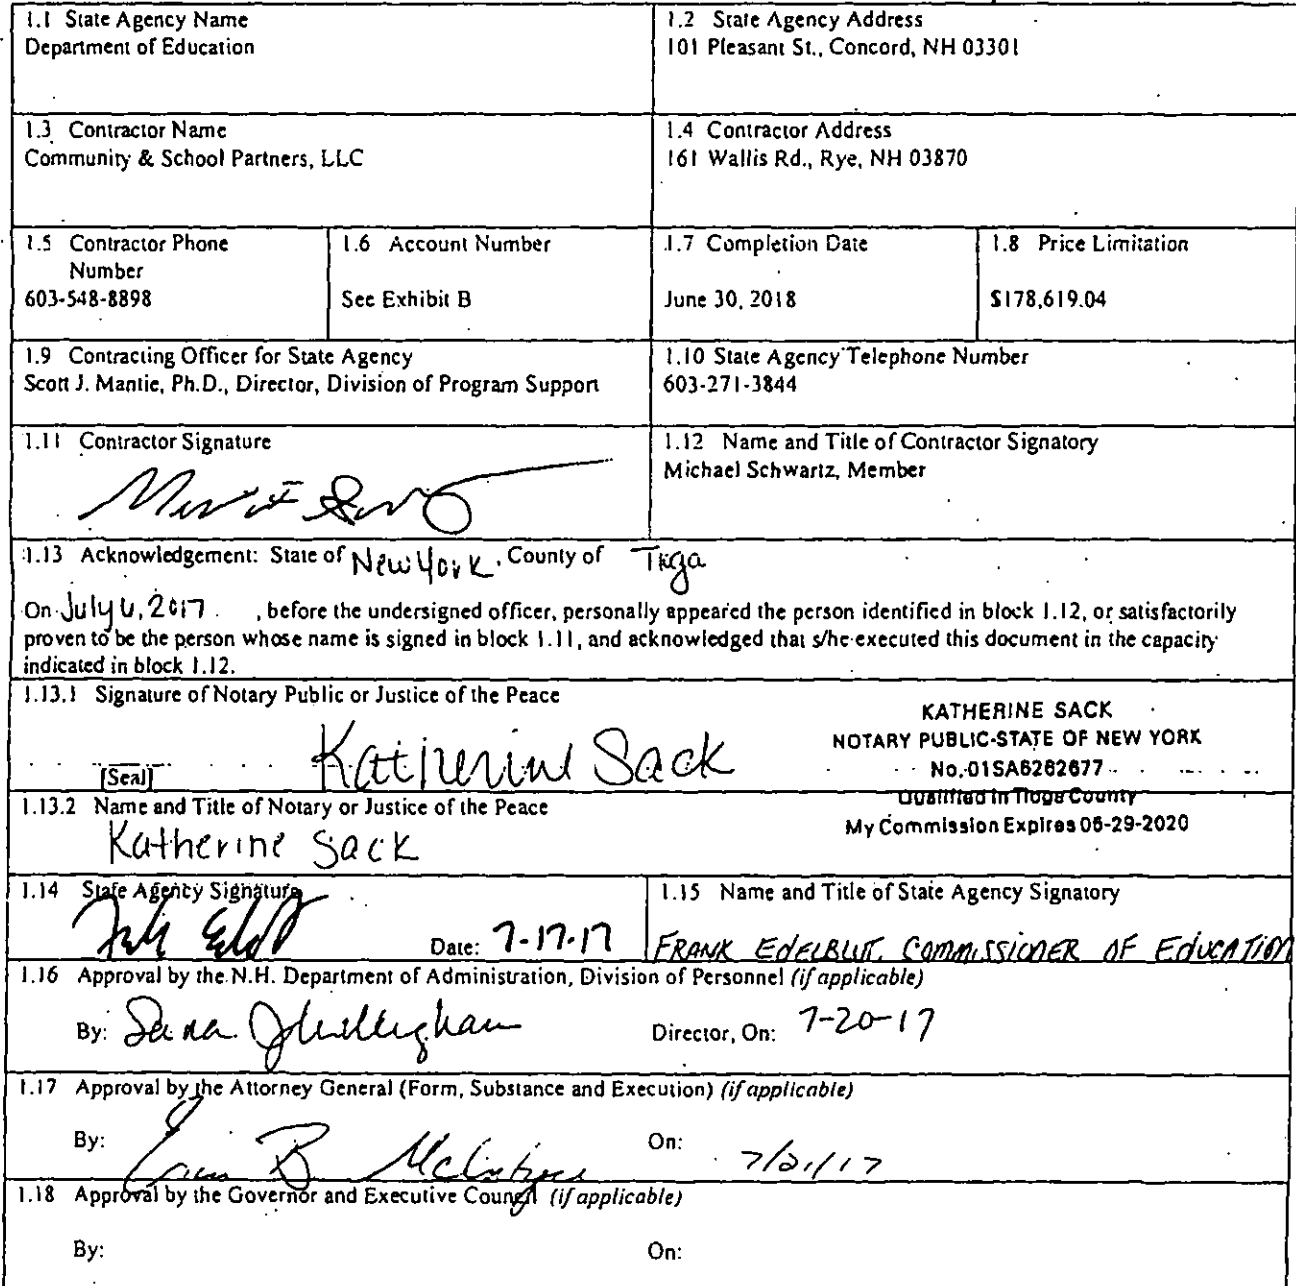 1.1 State Agency Name
Department of Education
1.2 State Agency Address
101 Pleasant St., Concord, NH 03301
1.3 Contractor Name
Community & School Partners, LLC
1.4 Contractor Address
161 Wallis Rd., Rye, NH 03870
1.5 Contractor Phone
Number
603-548-8898
1.6 Account Number
See Exhibit B
1.7 Completion Date
June 30, 2018
1.8 Price Limitation
$178,619.04
1.9 Contracting Officer for State Agency
Scott J. Mantie, Ph.D., Director, Division of Program Support
1.10 State Agency Telephone Number
603-271-3844
1.11 Contractor Signature
1.12 Name and Title of Contractor Signatory
Michael Schwartz, Member
1.13 Acknowledgement: State of New York, County of Tioga
On July 6, 2017, before the undersigned officer, personally appeared the person identified in block 1.12, or satisfactorily
proven to be the person whose name is signed in block 1.11, and acknowledged that s/he executed this document in the capacity
indicated in block 1.12.
1.13.1 Signature of Notary Public or Justice of the Peace
Katherine Sack
[Seal]
KATHERINE SACK
NOTARY PUBLIC-STATE OF NEW YORK
No. 01SA6262677
Qualified in Tioga County
My Commission Expires 05-29-2020
1.13.2 Name and Title of Notary or Justice of the Peace
Katherine Sack
1.14 State Agency Signature
Date: 7-17-17
1.15 Name and Title of State Agency Signatory
FRANK EDELBLUT, COMMISSIONER OF EDUCATION
1.16 Approval by the N.H. Department of Administration, Division of Personnel (if applicable)
By:
Director, On: 7-20-17
1.17 Approval by the Attorney General (Form, Substance and Execution) (if applicable)
By:
On: 7/21/17
1.18 Approval by the Governor and Executive Council (if applicable)
By:
On: